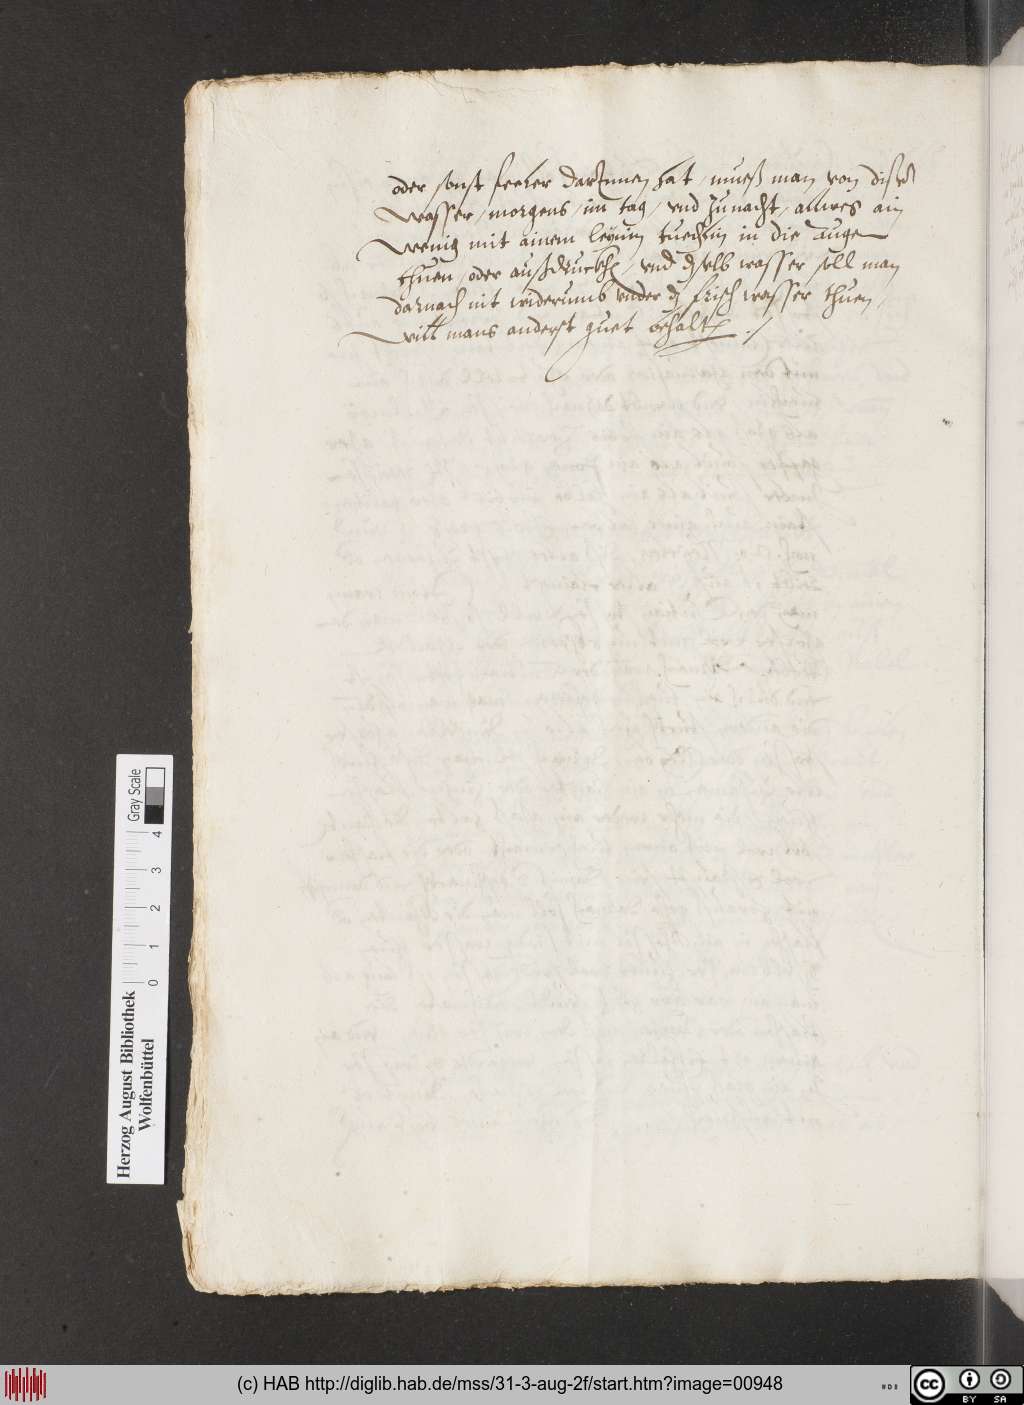 oder sonst feeler darInnen hat / mueß man von disem
wasser / morgens / im tag / vnd zunacht / allwes ain
wenig mit ainem leynin tuechlin in die augen
thuen / oder außdruckhen / vnd dselb wasser soll man
darnach nit widerumb vnder dz frisch wasser thuen /
will mans anderst guet behalten ./
Gray Scale
0 1 2 3 4
Herzog August Bibliothek
Wolfenbüttel
(c) HAB http://diglib.hab.de/mss/31-3-aug-2f/start.htm?image=00948
cc BY SA